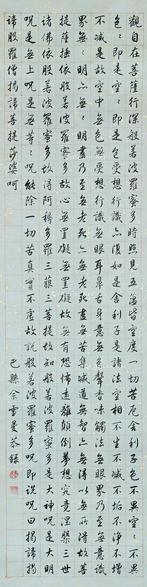 觀自在菩薩行深般若波羅蜜多時照見五蘊皆空度一切苦厄舍利子色不異空空不異
色色即是空空即是色受想行識亦復如是舍利子是諸法空相不生不滅不垢不淨不增
不減是故空中無色無受想行識無眼耳鼻舌身意無色聲香味觸法無眼界乃至無意識
界無無明亦無無明盡乃至無老死亦無老死盡無苦集滅道無智亦無得以無所得故菩
提薩埵依般若波羅蜜多故心無罣礙無罣礙故無有恐怖遠離顛倒夢想究竟涅槃三世
諸佛依般若波羅蜜多故得阿耨多羅三藐三菩提故知般若波羅蜜多是大神呪是大明
呪是無上呪是無等等呪能除一切苦真實不虛故說般若波羅蜜多呪即說呪曰揭諦揭
諦般羅僧揭諦菩提莎婆呵
巴縣余雪曼恭錄